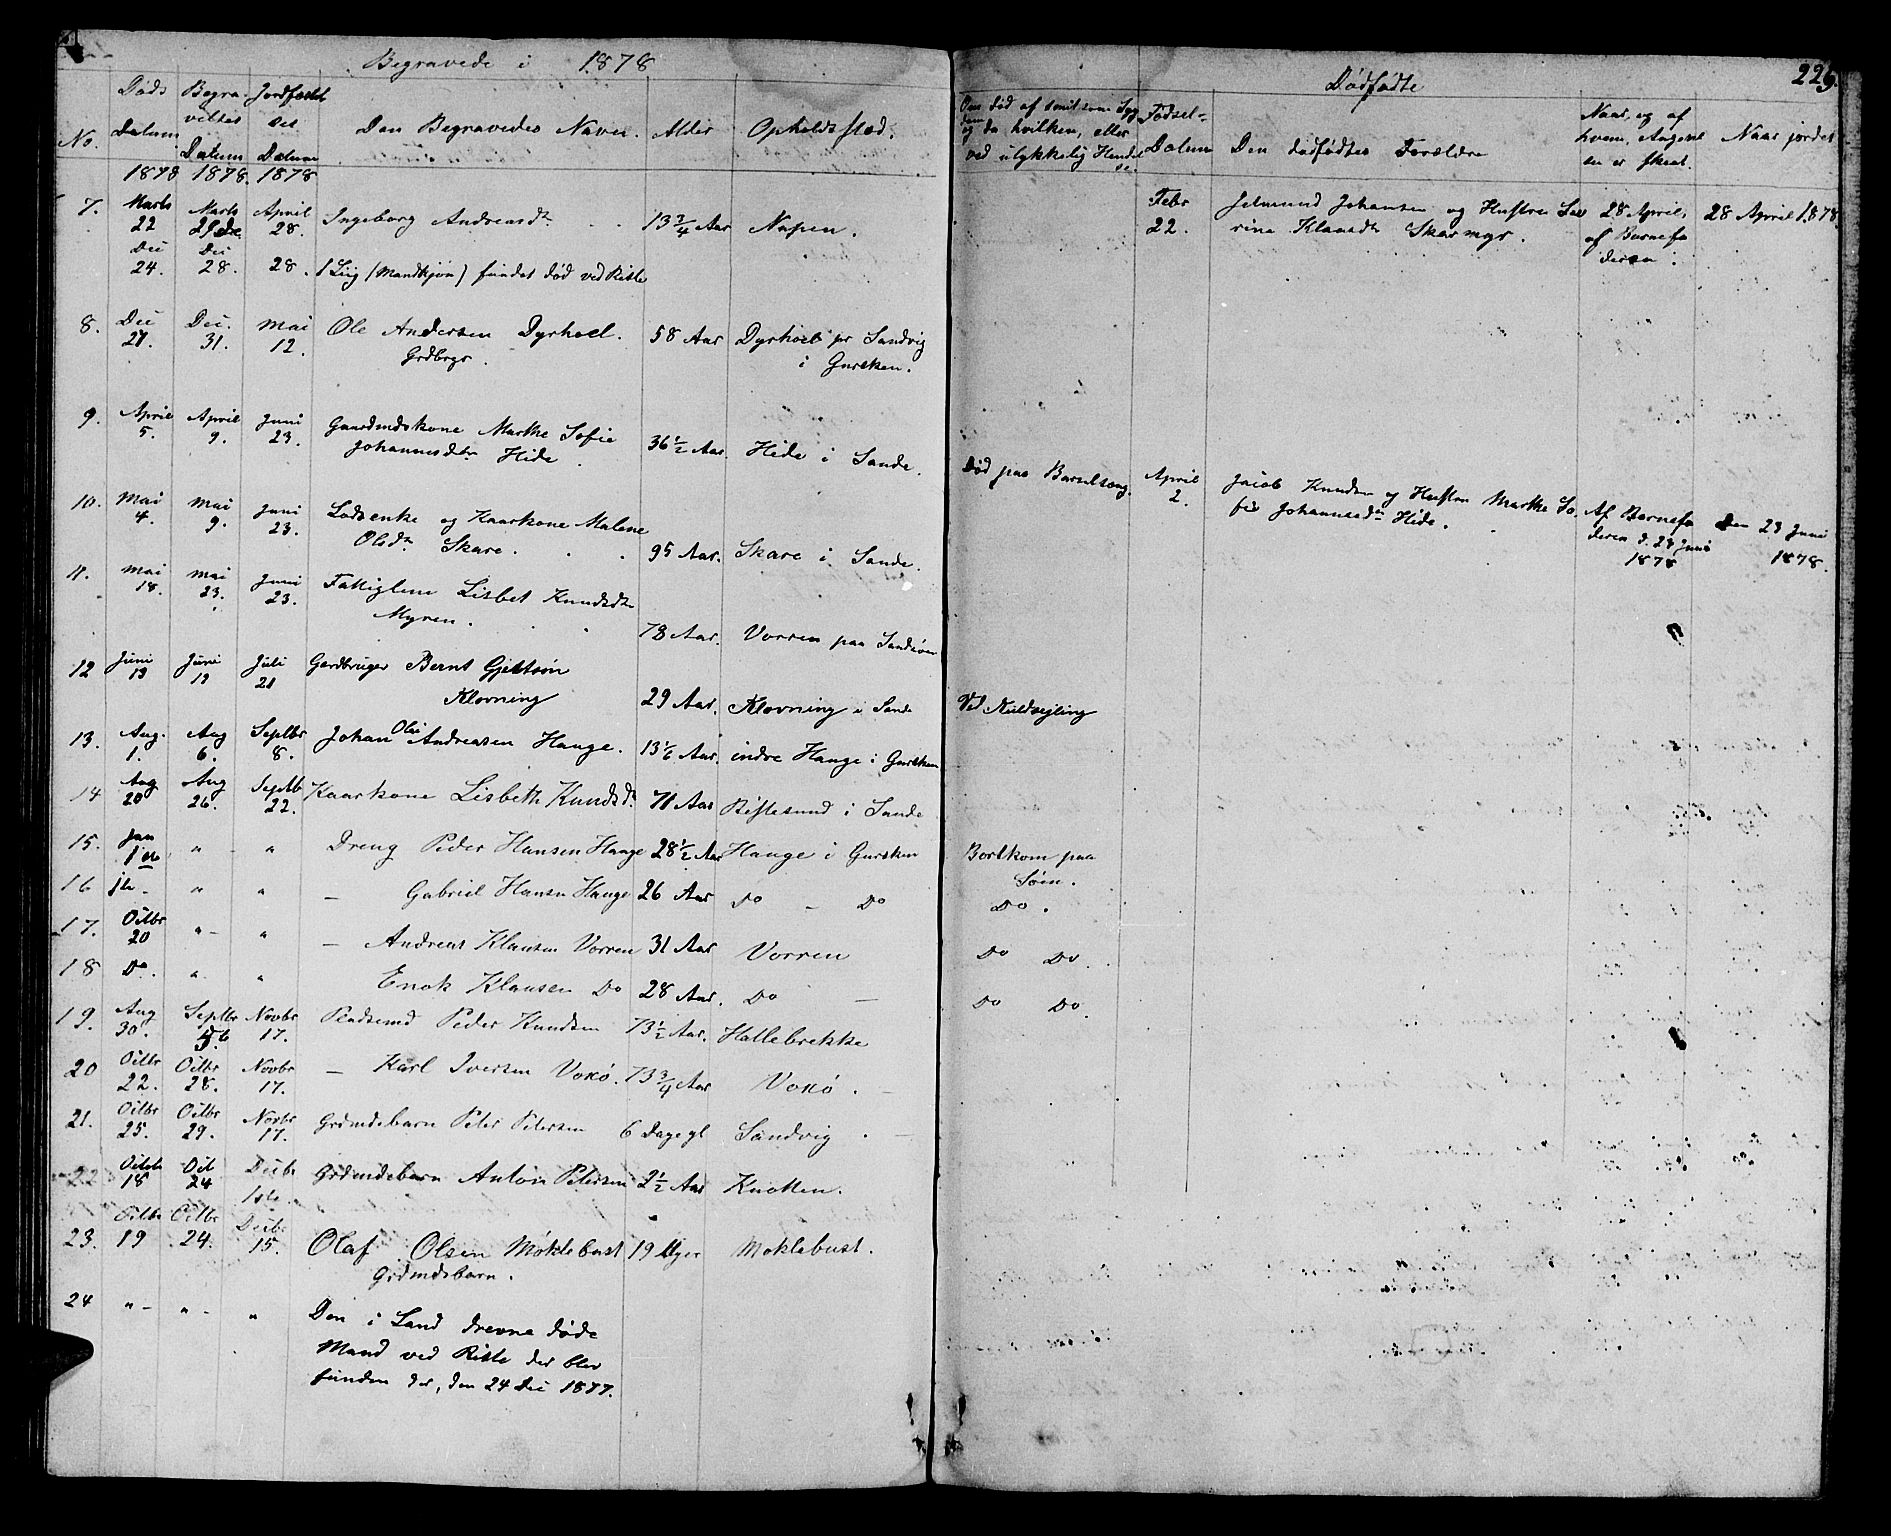 Begravede i 1878
No.
Døds Datum 1878
Begravelses Datum 1878.
Jordfæstelses Datum 1878
Den Begravedes Navn.
Alder
Opholdssted.
7. Marts 22 Marts 29de April 28. Ingeborg Andreasdtr 13 3/4 Aar Napen.
Dec 24. Dec 28. 28. 1 Liig (Mandkjøn) fundet død ved Riste
8. Dec 27. Dec. 31. Mai 12. Ole Andersen Dyrhoel. 58 Aar Dyrhoel pr Sandvig
Grdbrgr. i Gursken.
9. April 5. April 9. Juni 23. Gaardmdskone Marthe Sofie 36 1/2 Aar. Hide i Sande.
Johannesdtr Hide.
10. Mai 4. Mai 9. Juni 23. Lodsenke og Kaarkone Malene
Olsdtr Skare. 95 Aar. Skare i Sande.
11. Mai 18. Mai 23. Juni 23. Fattiglem Lisbet Knudsdtr
Myren. 78 Aar. Vorren paa
12 Juni 13 Juni 19 Juli 21 Gardbruger Bernt Gjertsøn
Klovning 29 Aar. Klovning i Sande
13. Aug. 1. Aug 6. Septbr 8. Johan Olai Andreasen Hauge. 13 1/6 Aar. indre Hauge i Gursken
14 Aug 20 Aug 26. Septb 22. Kaarkone Lisbeth Knudsdtr 71 Aar Ristesund i Sande
15. Jan 1ste " " Dreng Peder Hansen Hauge 28 1/2 Aar Hauge i Gursken
16 1ste - " " — Gabriel Hansen Hauge 26 Aar Do - Do
17. Octbr 20 " - " — Andreas Klausen Vorren 31 Aar Vorren
18 Do. " " Enok Klausen Do 28 Aar. Do —
19. Aug 30. Septbr 5te Novbr 17. Pladsemd Peder Knudsen 73 1/2 Aar. Hallebrekke
20 Octbr 22. Octbr 28. Novbr 17. — Karl Iversen Voxø. 73 3/4 Aar Voxø.
21. Octbr 25. Octbr 29. Novbr 17. Grdmdebarn Peter Petersen 6 Dage gl Sandvig.
22 Octob 18 Oct 24 Decbr 1ste. Grdmdebarn Anton Petersen 2 1/2 Aar Knotten.
23. Octbr 19 Octbr 24. Decbr 15. Olaf Olsen Møklebust 19 Uger Moklebust.
Grdmdsbarn.
24 " - " - " Den i Land drevne døde
Mand ved Riste der blev
funden der, den 24 Dec 1877.
229.
Dødfødte
Om død af smitsom Syg
dom og da hvilken, eller
ved ulykkelig Hændel
se.
Fødsel-
Datum
Den dødfødtes Forældre
Naar, og af
hvem, Angivel
se er skeet.
Naar jordet
Febr 22. Johansen og Hustru Se
rine Klausdtr Skarmyr. 28 April, af Barnefa
deren. 28 April 1878.
Død paa Barselseng. April 2. Jacob Knudsen og Hustru Marthe So
fie Johannesdtr Hide. Af Barnefa
deren d. 23 Juni
1878 Den 23 Juni
1878.
Ved Kuldsejling
Bortkom paa
Søen.
Do.
Do Do.
Do Do.